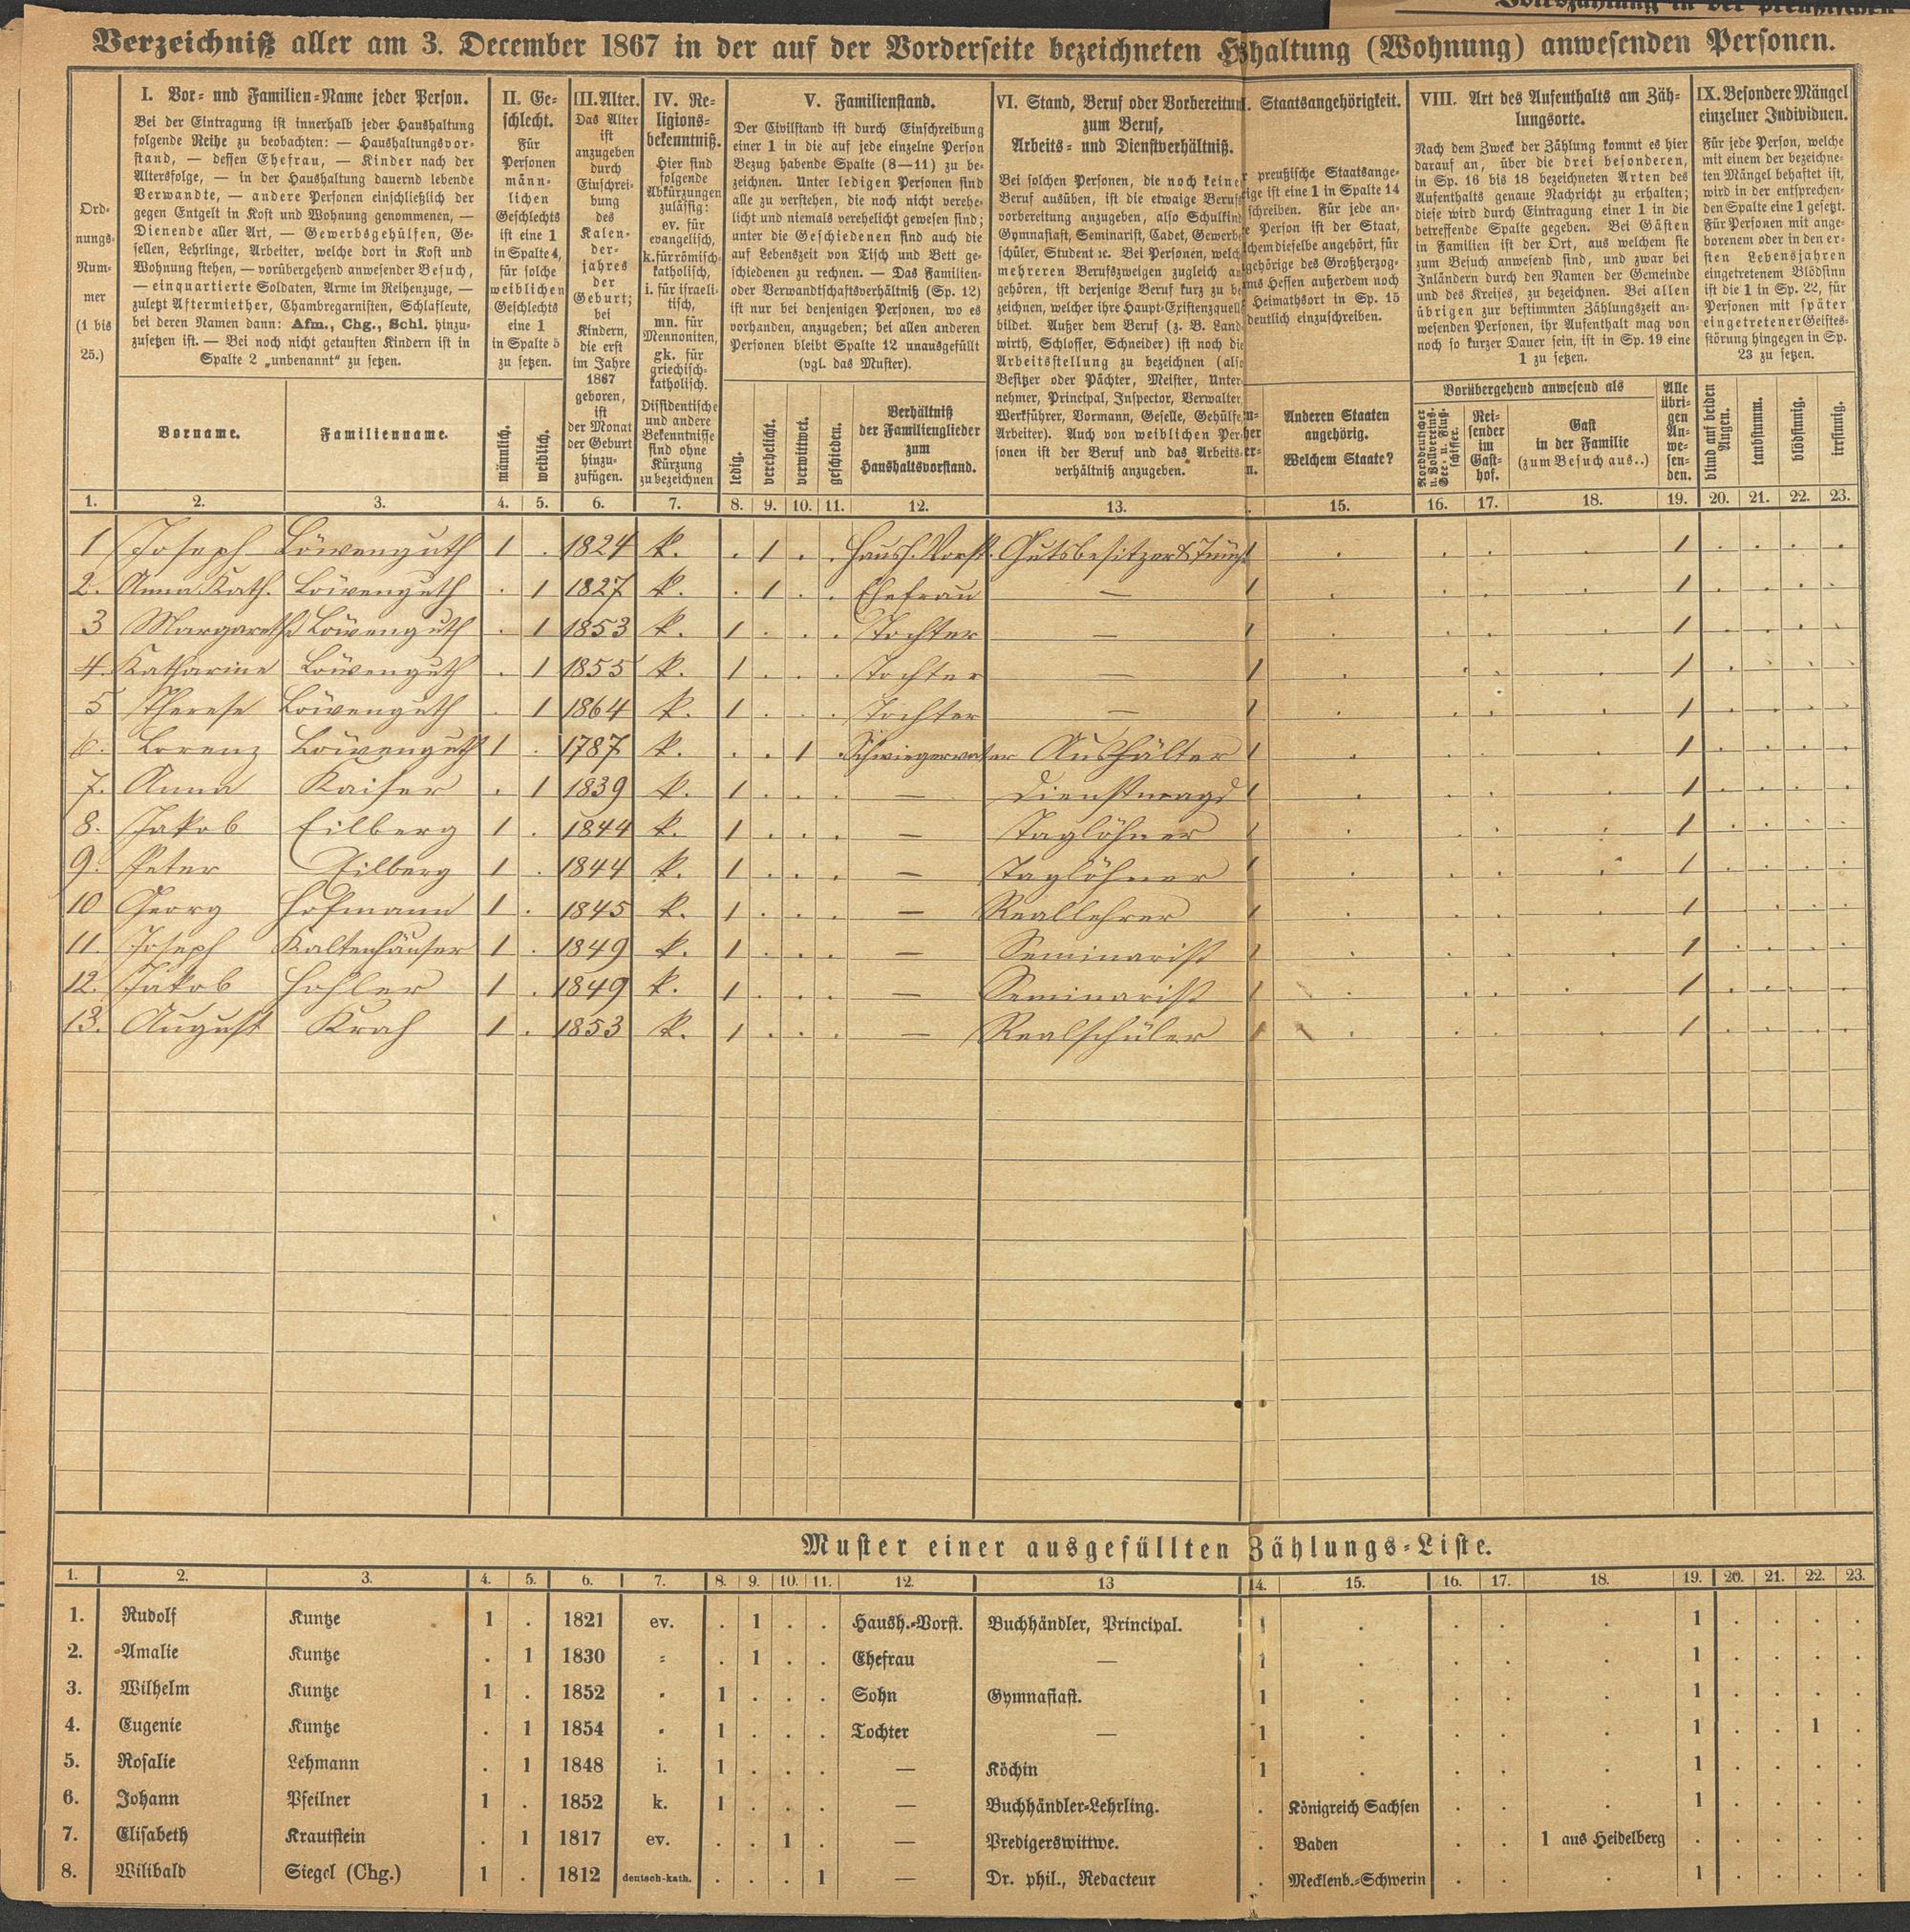 Verzeichniß aller am 3. December 1867 in der auf der Vorderseite bezeichneten Hshaltung (Wohnung) anwesenden Personen.
Ord-
nungs-
Num-
mer
(1 bis
25.)
I. Vor- und Familien-Name jeder Person.
Bei der Eintragung ist innerhalb jeder Haushaltung
folgende Reihe zu beobachten: — Haushaltungsvor-
stand, — dessen Ehefrau, — Kinder nach der
Altersfolge, — in der Haushaltung dauernd lebende
Verwandte, — andere Personen einschließlich der
gegen Entgelt in Kost und Wohnung genommenen, —
Dienende aller Art, — Gewerbsgehülfen, Ge-
sellen, Lehrlinge, Arbeiter, welche dort in Kost und
Wohnung stehen, — vorübergehend anwesender Besuch,
— einquartierte Soldaten, Arme im Reihenzuge, —
zuletzt Aftermiether, Chambregarnisten, Schlafleute,
bei deren Namen dann: Afm., Chg., Schl. hinzu-
zusetzen ist. — Bei noch nicht getauften Kindern ist in
Spalte 2 „unbenannt“ zu setzen.
Vorname.
Familienname.
II. Ge-
schlecht.
Für
Personen
männ-
lichen
Geschlechts
ist eine 1
in Spalte 4,
für solche
weiblichen
Geschlechts
eine 1
in Spalte 5
zu setzen.
männlich.
weiblich.
III. Alter.
Das Alter
ist
anzugeben
durch
Einschrei-
bung
des
Kalen-
der-
jahres
der
Geburt;
bei
Kindern,
die erst
im Jahre
1867
geboren,
ist
der Monat
der Geburt
hinzu-
zufügen.
IV. Re-
ligions-
bekenntniß.
Hier sind
folgende
Abkürzungen
zulässig:
ev. für
evangelisch,
k. für römisch-
katholisch,
i. für israeli-
tisch,
mn. für
Mennoniten,
gk. für
griechisch-
katholisch.
Dissidentische
und andere
Bekenntnisse
sind ohne
Kürzung
zu bezeichnen
V. Familienstand.
Der Civilstand ist durch Einschreibung
einer 1 in die auf jede einzelne Person
Bezug habende Spalte (8—11) zu be-
zeichnen. Unter ledigen Personen sind
alle zu verstehen, die noch nicht verehe-
licht und niemals verehelicht gewesen sind;
unter die Geschiedenen sind auch die
auf Lebenszeit von Tisch und Bett ge-
schiedenen zu rechnen. — Das Familien-
oder Verwandtschaftsverhältniß (Sp. 12)
ist nur bei denjenigen Personen, wo es
vorhanden, anzugeben; bei allen anderen
Personen bleibt Spalte 12 unausgefüllt
(vgl. das Muster).
ledig.
verehelicht.
verwittwet.
geschieden.
Verhältniß
der Familienglieder
zum
Haushaltsvorstand.
VI. Stand, Beruf oder Vorbereitun
zum Beruf,
Arbeits- und Dienstverhältniß.
Bei solchen Personen, die noch keine
Beruf ausüben, ist die etwaige Berufs
vorbereitung anzugeben, also Schulkin
Gymnasiast, Seminarist, Cadet, Gewerb
schüler, Student ꝛc. Bei Personen, welch
mehreren Berufszweigen zugleich a
gehören, ist derjenige Beruf kurz zu b
zeichnen, welcher ihre Haupt-Existenzquell
bildet. Außer dem Beruf (z. B. Land
wirth, Schlosser, Schneider) ist noch die
Arbeitsstellung zu bezeichnen (also
Besitzer oder Pächter, Meister, Unter-
nehmer, Principal, Inspector, Verwalter,
Werkführer, Vormann, Geselle, Gehülfe
Arbeiter). Auch von weiblichen Per-
sonen ist der Beruf und das Arbeits-
verhältniß anzugeben.
. Staatsangehörigkeit.
preußische Staatsange-
ige ist eine 1 in Spalte 14
schreiben. Für jede an-
e Person ist der Staat,
lchem dieselbe angehört, für
gehörige des Großherzog-
ms Hessen außerdem noch
Heimathsort in Sp. 15
deutlich einzuschreiben.
Anderen Staaten
angehörig.
Welchem Staate?
VIII. Art des Aufenthalts am Zäh-
lungsorte.
Nach dem Zweck der Zählung kommt es hier
darauf an, über die drei besonderen,
in Sp. 16 bis 18 bezeichneten Arten des
Aufenthalts genaue Nachricht zu erhalten;
diese wird durch Eintragung einer 1 in die
betreffende Spalte gegeben. Bei Gästen
in Familien ist der Ort, aus welchem sie
zum Besuch anwesend sind, und zwar bei
Inländern durch den Namen der Gemeinde
und des Kreises, zu bezeichnen. Bei allen
übrigen zur bestimmten Zählungszeit an-
wesenden Personen, ihr Aufenthalt mag von
noch so kurzer Dauer sein, ist in Sp. 19 eine
1 zu setzen.
Vorübergehend anwesend als
Norddeutscher
u. Zollvereins-
See- u. Fluß-
schiffer.
Rei-
sender
im
Gast-
hof.
Gast
in der Familie
(zum Besuch aus..)
Alle
übri-
gen
An-
we-
sen-
den.
IX. Besondere Mängel
einzelner Individuen.
Für jede Person, welche
mit einem der bezeichne-
ten Mängel behaftet ist,
wird in der entsprechen-
den Spalte eine 1 gesetzt.
Für Personen mit ange-
borenem oder in den er-
sten Lebensjahren
eingetretenem Blödsinn
ist die 1 in Sp. 22, für
Personen mit später
eingetretener Geistes-
störung hingegen in Sp.
23 zu setzen.
blind auf beiden
Augen.
taubstumm.
blödsinnig.
irrsinnig.
1. 2. 3. 4. 5. 6. 7. 8. 9. 10. 11. 12. 13. 15. 16. 17. 18. 19. 20. 21. 22. 23.
1 Joseph Löwenguth 1 . 1824 k. . 1 . . Haush. Vorst. Gutsbesitzer & 1 . . . . 1 . . . .
2. Anna Kath. Löwenguth . 1 1827 k. . 1 . . Ehefrau — 1 . . . . 1 . . . .
3 Margareth Löwenguth . 1 1853 k. 1 . . . Tochter — 1 . . . . 1 . . . .
4. Katharine Löwenguth . 1 1855 k. 1 . . . Tochter — 1 . . . . 1 . . . .
5 Therese Löwenguth . 1 1864 k. 1 . . . Tochter — 1 . . . . 1 . . . .
6. Lorenz Löwenguth 1 . 1787 k. . . 1 . Schwiegervater Aushälter 1 . . . . 1 . . . .
7. Anna Kaiser . 1 1839 k. 1 . . . — Dienstmagd 1 . . . . 1 . . . .
8. Jakob Eilberg 1 . 1844 k. 1 . . . — Taglöhner 1 . . . . 1 . . . .
9. Peter Eilberg 1 . 1844 k. 1 . . . — Taglöhner 1 . . . . 1 . . . .
10 Georg Hofmann 1 . 1845 k. 1 . . . — Reallehrer 1 . . . . 1 . . . .
11. Joseph Kaltenhäuser 1 . 1849 k. 1 . . . — Seminarist 1 . . . . 1 . . . .
12. Jakob Hohler 1 . 1849 k. 1 . . . — Seminarist 1 . . . . 1 . . . .
13. August Krah 1 . 1853 k. 1 . . . — Realschüler 1 . . . . 1 . . . .
Muster einer ausgefüllten Zählungs-Liste.
1. 2. 3. 4. 5. 6. 7. 8. 9. 10. 11. 12. 13 14. 15. 16. 17. 18. 19. 20. 21. 22. 23.
1. Rudolf Kuntze 1 . 1821 ev. . 1 . . Haush.-Vorst. Buchhändler, Principal. 1 . . . . 1 . . . .
2. Amalie Kuntze . 1 1830 " . 1 . . Ehefrau — 1 . . . . 1 . . . .
3. Wilhelm Kuntze 1 . 1852 " 1 . . . Sohn Gymnasiast. 1 . . . . 1 . . . .
4. Eugenie Kuntze . 1 1854 " 1 . . . Tochter — 1 . . . . 1 . . 1 .
5. Rosalie Lehmann . 1 1848 i. 1 . . . — Köchin 1 . . . . 1 . . . .
6. Johann Pfeilner 1 . 1852 k. 1 . . . — Buchhändler-Lehrling. . Königreich Sachsen . . . 1 . . . .
7. Elisabeth Krautstein . 1 1817 ev. . . 1 . — Predigerswittwe. . Baden . . 1 aus Heidelberg . . . . .
8. Wilibald Siegel (Chg.) 1 . 1812 deutsch-kath. . . . 1 — Dr. phil., Redacteur . Mecklenb.-Schwerin . . . 1 . . . .